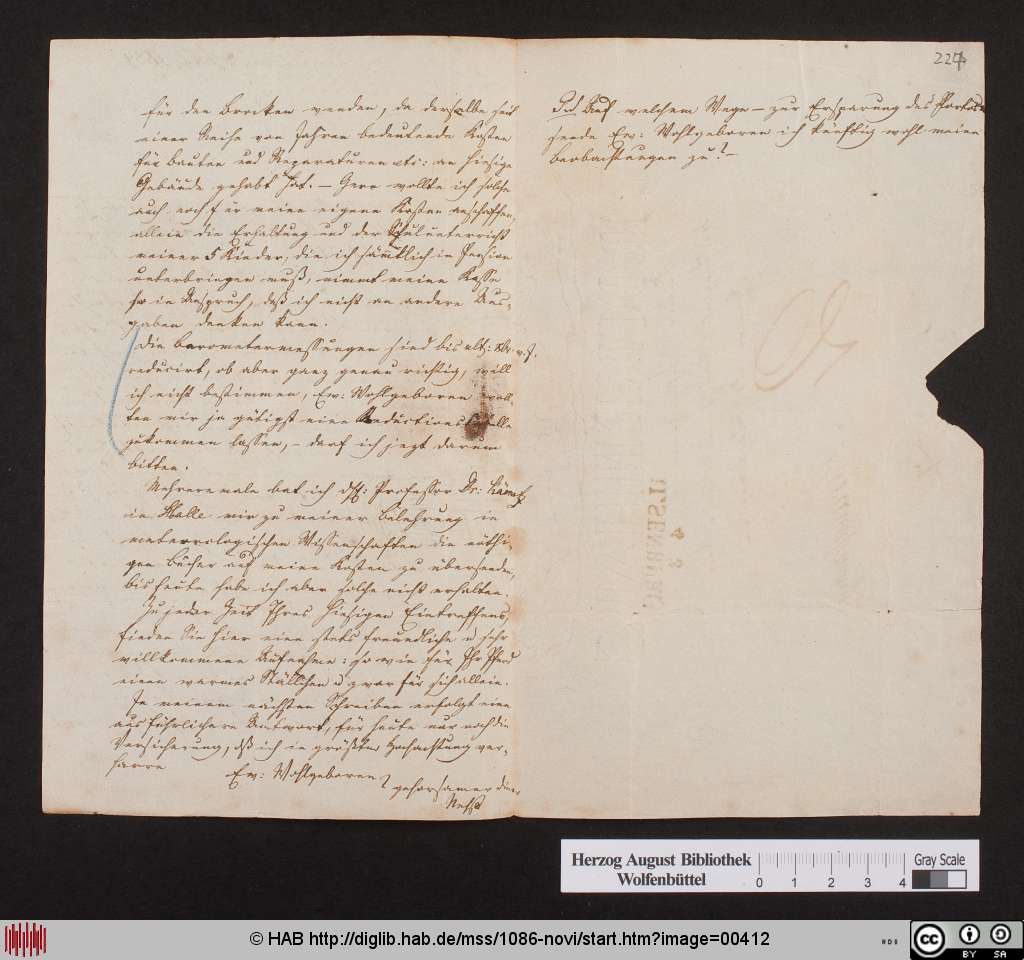 für den Brocken wenden, da derselbe seit
einer Reihe von Jahren bedeutende Kosten
für Bauten und Reparaturen etc: an hiesige
Gebäude gehabt hat. – Gern wollte ich solche
auch noch für meine eigene Kosten anschaffen,
allein die Erhaltung und der Schulunterricht
meiner 5 Kinder, die ich sämtlich in Pension
unterbringen muß, nimmt meine Kasse
so in Anspruch, daß ich nicht an andere Aus-
gaben denken kann.
Die Barometermessungen sind bis ult: v. J.
reducirt, ob aber ganz genau richtig, will
ich nicht bestimmen, Ew: Wohlgeboren woll-
ten mir ja gütigst eine Reductionstabelle
zukommen lassen, – darf ich jezt darum
bitten.
Mehrere male bat ich Professor Dr: Kämtz
in Halle mir zu meiner Belehrung in
meteorologischen Wissenschaften die nöthi-
gen Bücher auf meine Kosten zu übersenden,
bis heute habe ich aber solche nicht erhalten.
Zu jeder Zeit Ihres hiesigen Eintreffens,
finden Sie hier eine stets freundliche u sehr
willkommene Aufnahme: so wie für Ihr Pferd
einen warmes Ställchen u zwar für sich allein.
In meinem nächsten Schreiben erfolgt eine
ausführlichere Antwort, für heute nur noch die
Versicherung, daß ich in größter Hochachtung ver-
harre
Ew: Wohlgeboren
gehorsamer Diener
Nehse
224
Auf welchem Wege – zur Ersparung des Portos –
sende Ew: Wohlgeboren ich künftig wohl meine
Beobachtungen zu? –
ILSENBURG
Herzog August Bibliothek
Wolfenbüttel
0 1 2 3 4
Gray Scale
© HAB http://diglib.hab.de/mss/1086-novi/start.htm?image=00412
cc BY SA